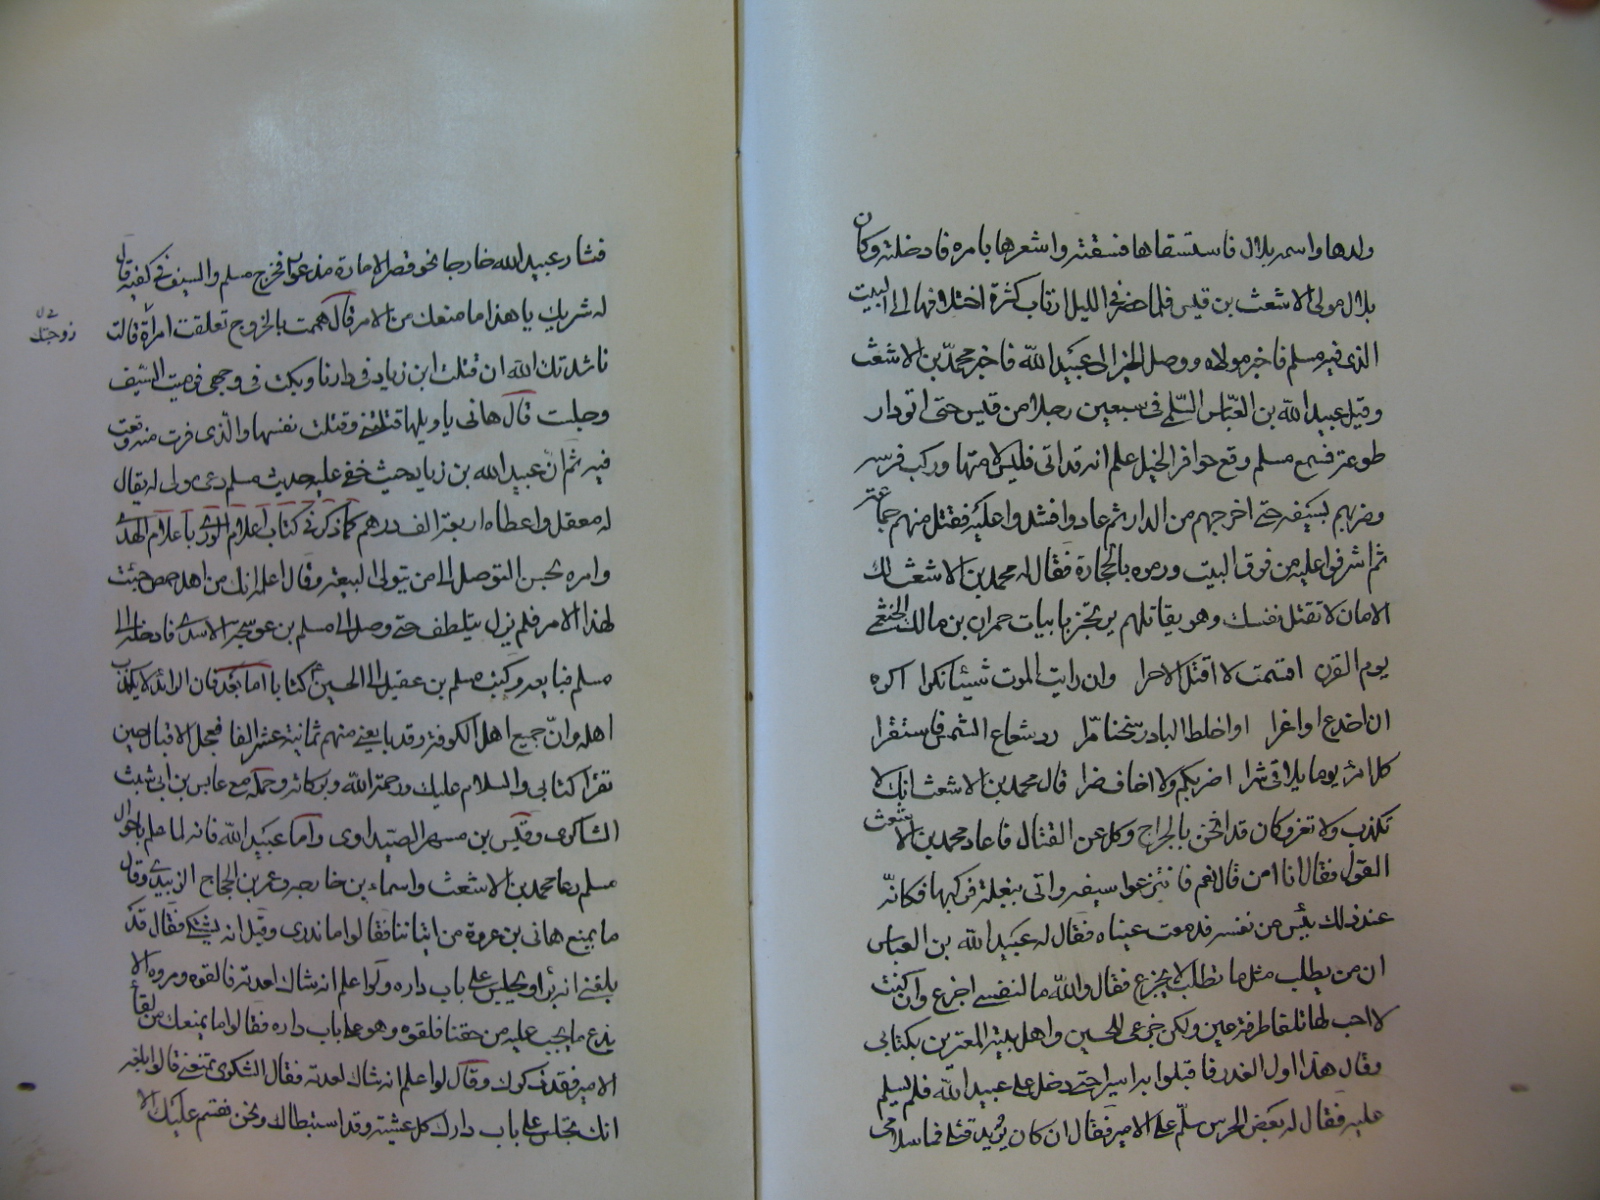 ولدها واسمه بلال فاستسقاها فسقته واشعرها بامره فادخلته وكان
بلال مولى الاشعث بن قيس فلما حضر في الليل ارتاب كثرة اختلافها الى البيت
الذى فيه مسلم فاخبر مولاه ووصل الخبر الى عبيد الله فاخبر محمد بن الاشعث
وقيل عبيد الله بن العباس السلمى فى سبعين رجلا من قيس حتى اتو دار
طوعة فسمع مسلم وقع حوافر الخيل علم انه قد اتى فلبس لامتها وركب فرسه
وضربهم بسيفه حتى اخرجهم من الدار ثم عادوا فشدوا عليه فقتل منهم جماعة
ثم اشرفوا عليه من فوق البيت ورموه بالحجارة فقال له محمد بن الاشعث لك
الامان لا تقتل نفسك وهو يقاتلهم يرتجز بابيات حمران بن مالك الخثعمى
يوم القرن اقسمت لا اقتل الا حرا وان رايت الموت شيئا نكرا اكره
ان اخدع او اغرا او اخلط البارد سخنا مرا رد شعاع الشمس فاستقرا
كل امرء يوما يلاقى شرا اضربكم ولا اخاف ضرا قال محمد بن الاشعث انك لا
تكذب ولا تغر وكان قد اثخن بالجراح وكل عن القتال فاعاد محمد بن الاشعث
القول فقال انا امن قال نعم فانتزعوا سيفه واتى ببغلة فركبها فكانه
عند ذلك يئس من نفسه فدمعت عيناه فقال له عبيد الله بن العباس
ان من يطلب مثل ما تطلب لا يجزع فقال والله ما لنفسى اجزع وان كنت
لا احب لها تلفا طرفة عين ولكن جزعى للحسين واهل بيته المغترين بكتابى
وقال هذا اول الغدر فاقبلوا به اسيرا حتى دخل على عبيد الله فلم يسلم
عليه فقال له بعض الحرس سلم على الامير فقال ان كان يريد قتلى فما سلامى
فشار عبيد الله خارجا نحو قصر الامارة مذعورا فخرج مسلم والسيف فى كفه قال
له شريك يا هذا ما منعك من الامر قال هممت بالخروج تعلقت امرأة قالت
زوجتك
ناشدتك الله ان قتلت ابن زياد فى دارنا وبكت فى وجهى فرميت السيف
وجلست قال هانى يا ويلها قتلتنى وقتلت نفسها والذى فرت منه وقعت
فيه ثم ان عبيد الله بن زياد حيث خفى عليه حديث مسلم دعى مولى له يقال
له معقل واعطاه اربعة الف درهم كما ذكر فى كتاب اعلام الورى باعلام الهدى
وامره بحسن التوصل الى من يتولى البيعة وقال اعلمه انك من اهل حمص جئت
لهذا الامر فلم يزل يتلطف حتى وصل الى مسلم بن عوسجة الاسدى فادخله الى
مسلم فبايعه وكتب مسلم بن عقيل الى الحسين ع كتابا اما بعد فان الرائد لا يكذب
اهله وان جميع اهل الكوفة وقد بايعنى منهم ثمانية عشر الفا فعجل الاقبال حين
تقرأ كتابى والسلام عليك ورحمة الله وبركاته وحمله مع عابس بن ابى شبث
الشاكرى وقيس بن مسهر الصيداوى واما عبيد الله فانه لما علم باحوال
مسلم دعا محمد بن الاشعث واسماء بن خارجه وعمر بن الحجاج الزبيدى وقال
ما يمنع هانى بن عروة من اتياننا فقالوا ما ندرى وقيل انه يشتكى فقال قد
بلغنى انه برأ ويجلس على باب داره ولو اعلم انه شاك لعدته فالقوه ومروه الا
يدع ما يجب عليه من حقنا فلقوه وهو على باب داره فقالوا ما يمنعك من لقأ
الامير فقد ذكرك وقال لو اعلم انه شاك لعدته فقال الشكوى تمنعنى قالوا بلغه
انك تجلس على باب دارك كل عشية وقد استبطاك ونحن نقسم عليك الا